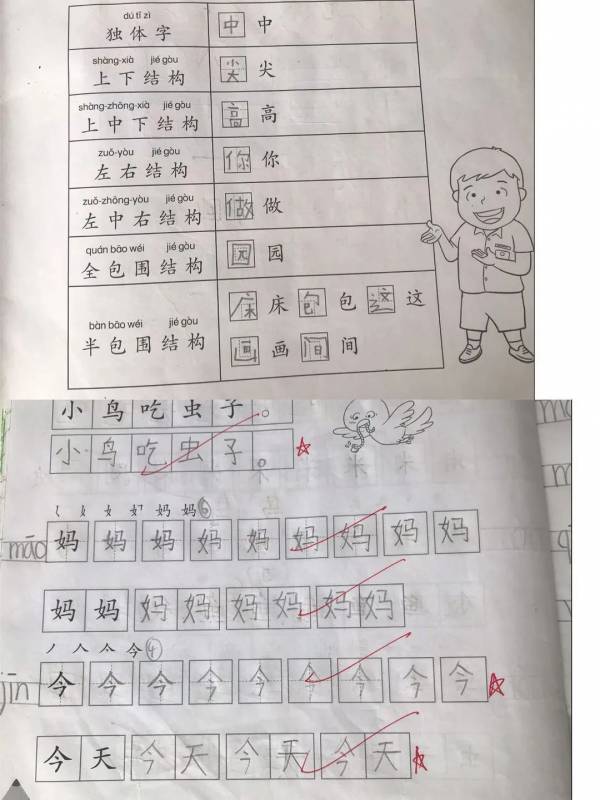 dú tǐ zì
独体字 中 中
shàng-xià jié gòu
上下结构 尖 尖
shàng-zhōng-xià jié gòu
上中下结构 高 高
zuǒ-yòu jié gòu
左右结构 你 你
zuǒ-zhōng-yòu jié gòu
左中右结构 做 做
quán bāo wéi jié gòu
全包围结构 园 园
床 床 包 包 这 这
bàn bāo wéi jié gòu
半包围结构
画 画 间 间
小鸟吃虫子。
小鸟吃虫子。
妈 妈 6
māo 妈 妈 妈 妈 妈 妈 妈 妈 妈
妈妈 妈妈 妈妈 妈妈
丿 人 亽 今 4
jīn 今 今 今 今 今 今 今 今 今
今天 今天 今天 今天